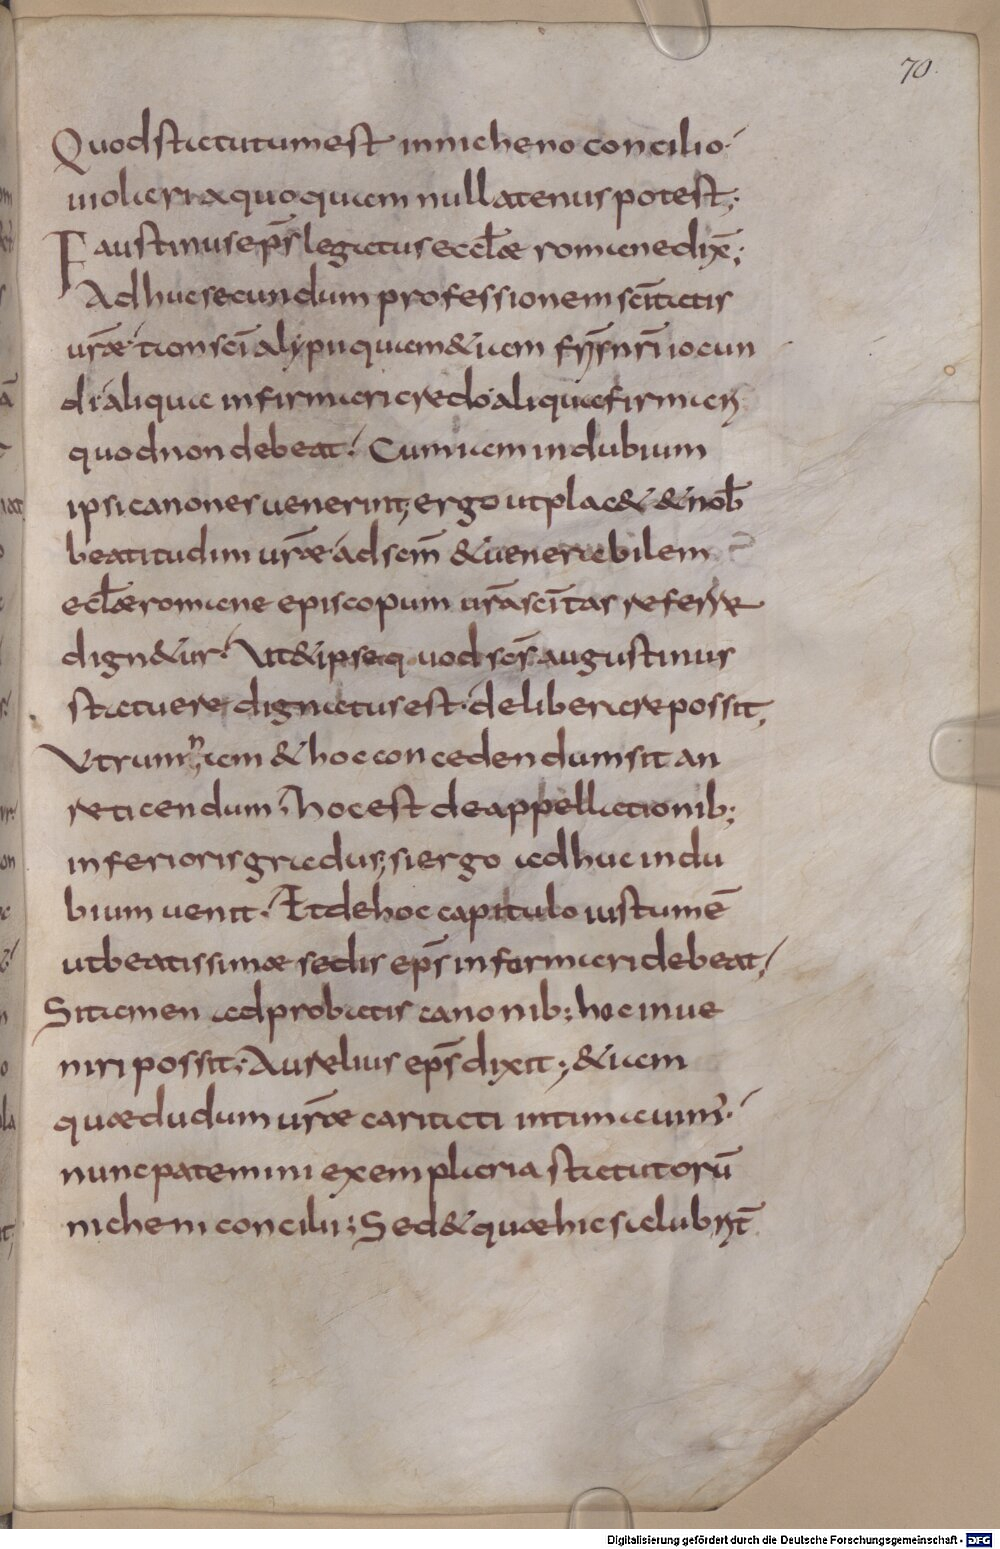 70.
Quod statutum est in nicheno concilio.
uiolari a quoquam nullatenus potest;
Faustinus ep̄s legatus eccl̄ae romane dix̄;
Adhuc secundum professionem sc̄itatis
ur̄ae tam sc̄i alypii quam & iam
di aliqua infirmari credo aliqua firmari
quod non debeat. Cum iam in dubium
ipsi canones uenerint; ergo ut plac& & nob̄
beatitudini ur̄ae ad sc̄m & uenerabilem
ecl̄ae romane episcopum ur̄a sc̄itas referre
dign&ur. Ut & ipse quod sc̄s augustinus
statuere dignatus est. deliberare possit,
Utrumnam & hoc concedendum sit an
reticendum, hoc est de appellationib;
inferioris gradus; si ergo adhuc in du
bium uenit. Et de hoc capitulo iustum ē
ut beatissimae sedis ep̄s informari debeat,
Si tamen ad probatis canonib; hoc inue
niri possit; Aurelius ep̄s dixit; & iam
quae dudum ur̄ae caritati intimauim'.
nunc patemini exemplaria statutorū
nicheni concilii; Sed & quae hic salubrit̄
Digitalisierung gefördert durch die Deutsche Forschungsgemeinschaft - DFG